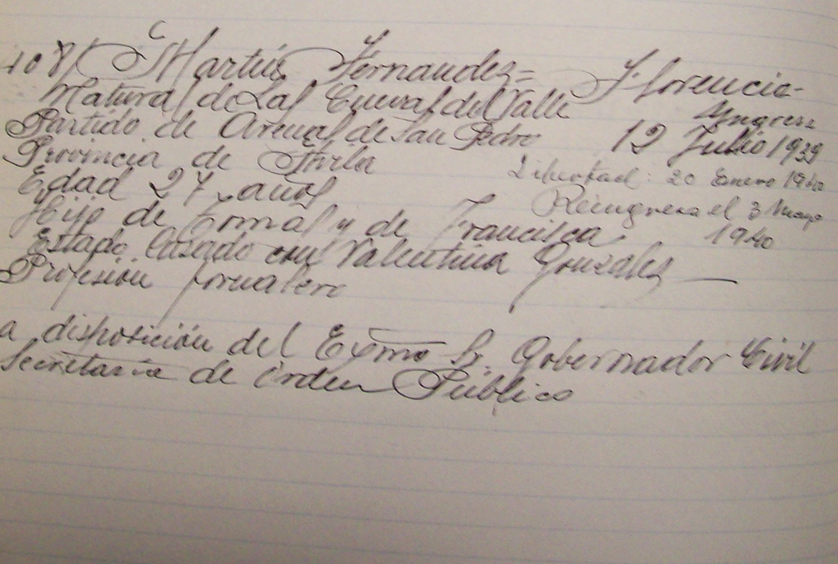 108/ C Martín Fernandez= Florencio-
Natural de Las Cuevas del Valle
Ingresa
Partido de Arenas de San Pedro
12 Julio 1939
Provincia de Ávila
Libertad: 20 Enero 1940
Edad 27 años
Reingresa el 3 Mayo
1940
Hijo de Tomás y de Francisca
Estado Casado con Valentina Gonzalez
Profesión jornalero
a disposición del Exmo Sr. Gobernador Civil
Secretaria de órden Público